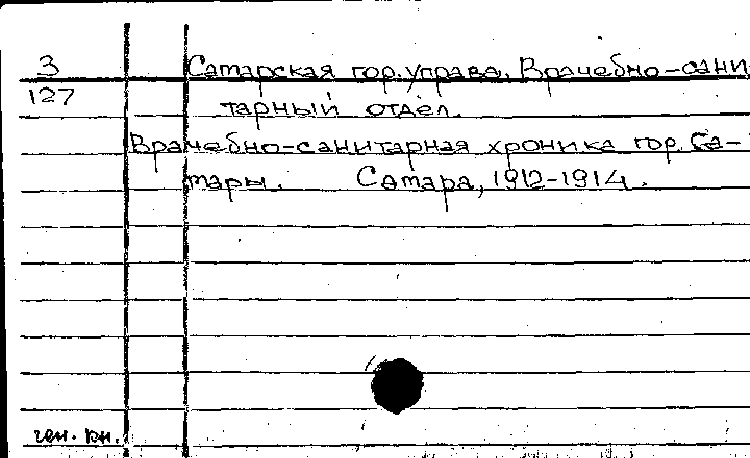 3
127
Самарская гор. управа. Врачебно-сани
тарный отдел.
Врачебно-санитарная хроника гор. Са-
мары. Самара, 1912-1914.
ген. кн.